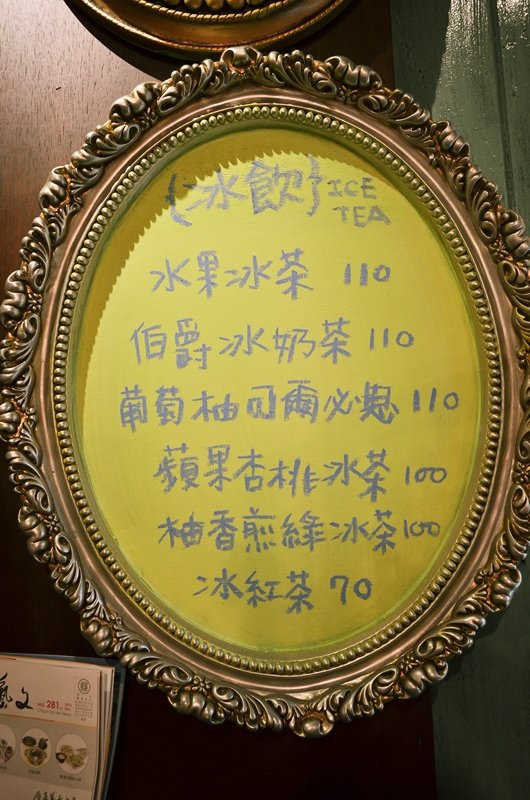 {冰飲} ICE TEA
水果冰茶 110
伯爵冰奶茶 110
葡萄柚可爾必思 110
蘋果杏桃冰茶 100
柚香煎綠冰茶 100
冰紅茶 70
藝文
vol.281